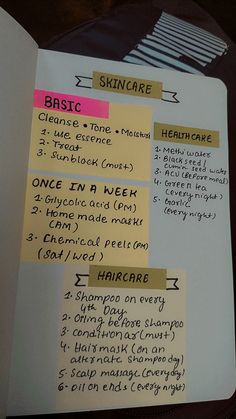 SKINCARE
BASIC
Cleanse • Tone • Moisturi
1. use essence
2. Treat
3. Sunblock (must)
ONCE IN A WEEK
1. Glycolic acid (PM)
2. Home made masks
(AM)
3. Chemical peels (PM)
(Sat/Wed)
HEALTHCARE
1. Methi water
2. Black seed /
cumin seed water
3. ACV (Before meal)
4. Green tea
(every night)
5. Garlic
(every night)
HAIRCARE
1. Shampoo on every
4th Day
2. Oiling before shampoo
3. conditionar (must)
4. Hair mask (on an
alternate shampoo day)
5. Scalp massage (everyday)
6. Oil on ends (every night)